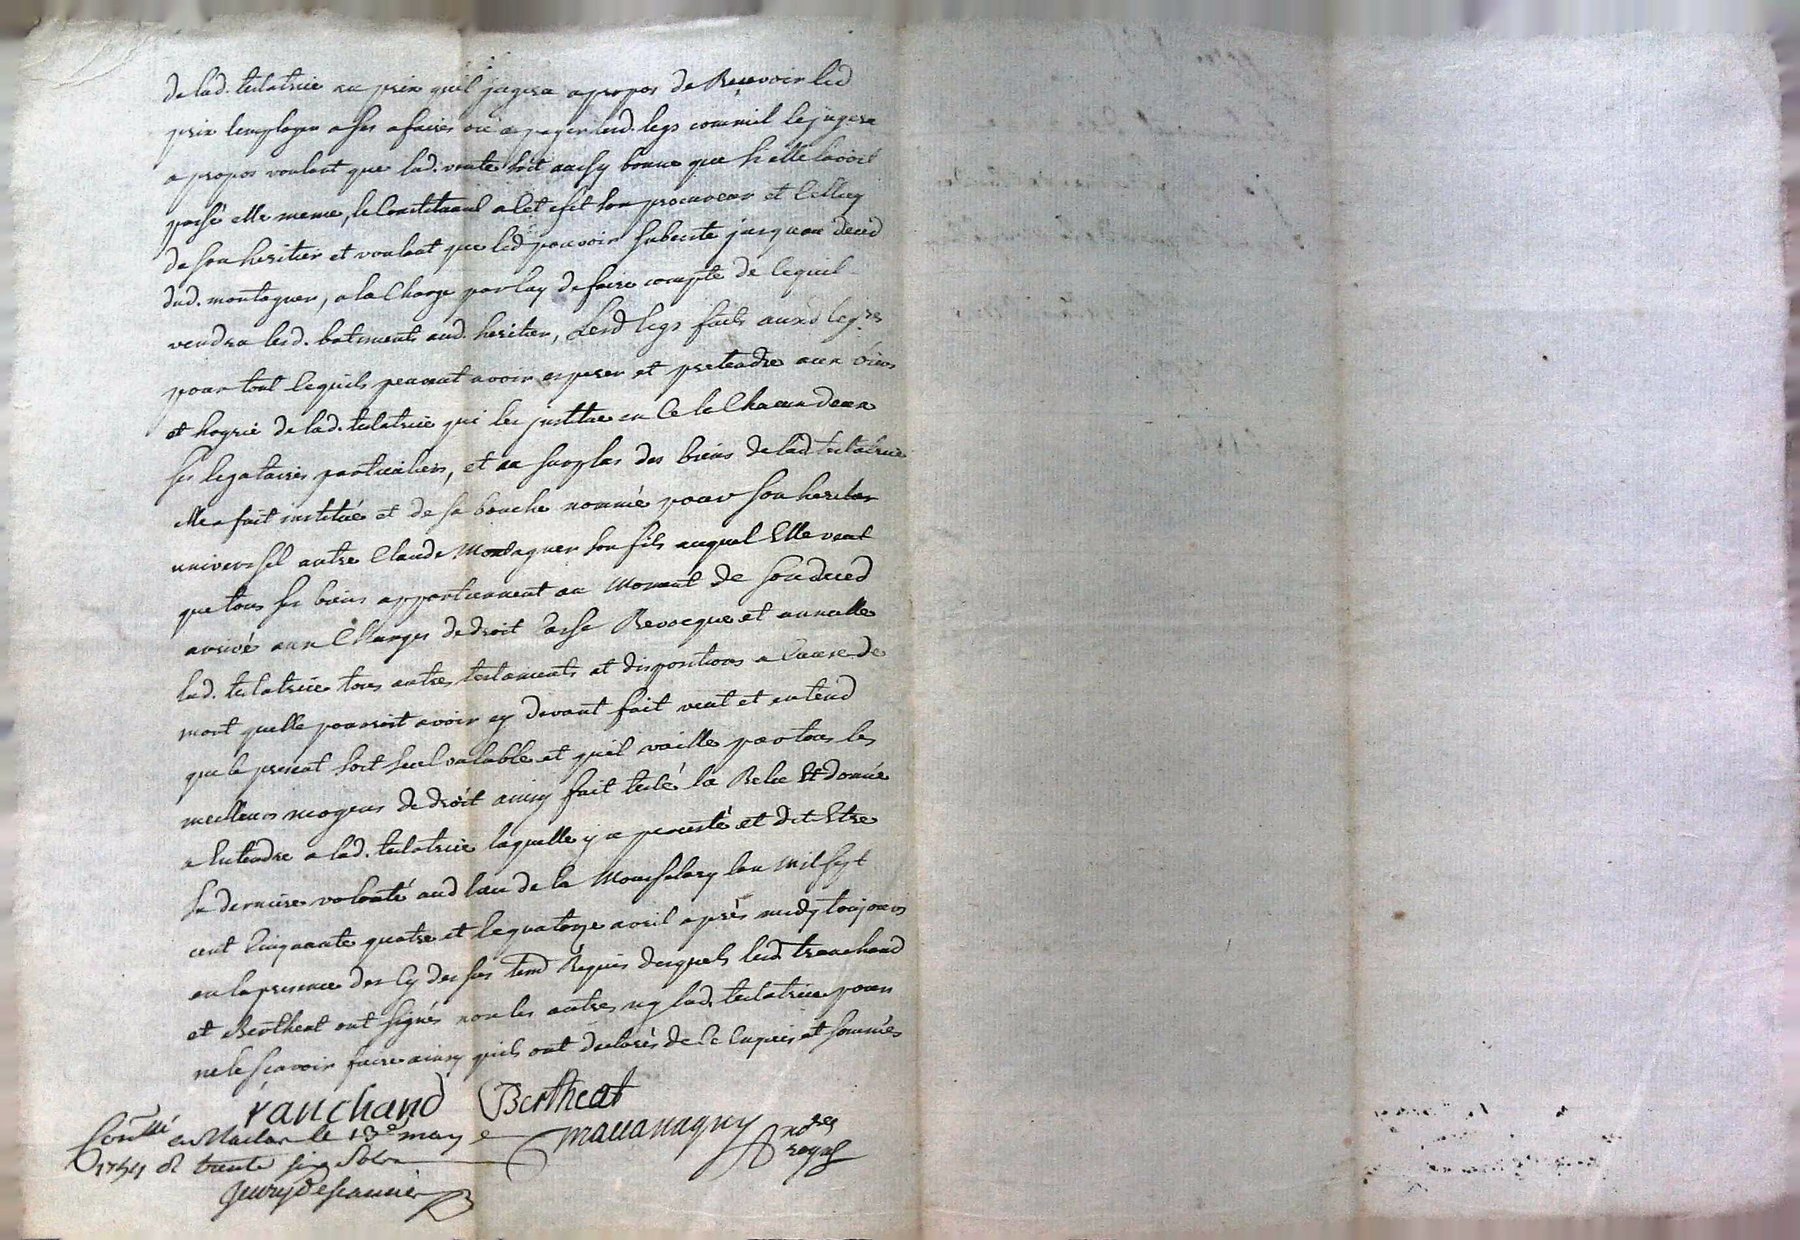 de lad. testatrice au prix quil jugera apropos de Recevoir led
prix lemployer a ses afaires ou a payer lesd. legs comme il le jugera
a propos voulant que lad. vente soit aussy bonne que si elle lavoit
passé elle meme, le Constituant a cet efet son procureur et celluy
de son heritier et voulant que led pouvoir subciste jusquau deced
dud. montagner, a la Charge par luy de faire compte de ce quil
vendra lesd. batiments aud. heritier, Lesd legs faits auxd leg.res
pour tout ce quils peuvent avoir esperer et pretendre aux biens
et hoyrie de lad. testatrice qui les jnstitue en Ce le Chacun deux
ses legataires particuliers, et au surplus des biens de lad testatrice
elle a fait institué et de sa bouche nommé pour son heritier
universsel autre Claude Montagner son fils auquel Elle veut
que tous ses biens appartiennent au Moment de son deced
arrivé aux Charges de droit Casse Revocque et annulle
lad. testatrice tous autres testaments et dispositions a Cause de
mort quelle pourroit avoir cy devant fait veut et entend
que le present soit seul valable et quil vaille par tous les
meilleurs moyens de droit ainsy fait testé lu Relu Et donné
a Entendre a lad. testatrice laquelle y a percisté et dit Etre
sa derniere volonté aud lieu de la lan mil sept
cent Cinquante quatre et le quatorze avril après midy toujours
en la presence des Cy dessus tem. Requis desquels led. tranchand
et Bertheat ont signés non les autres ny lad. testatrice pour
ne le scavoir faire ainsy quils ont declarés de ce Enquis et sommés
Bertheat
Con.llé a Maclas le 13e may
1754 R trente six Sols
no.re
royal